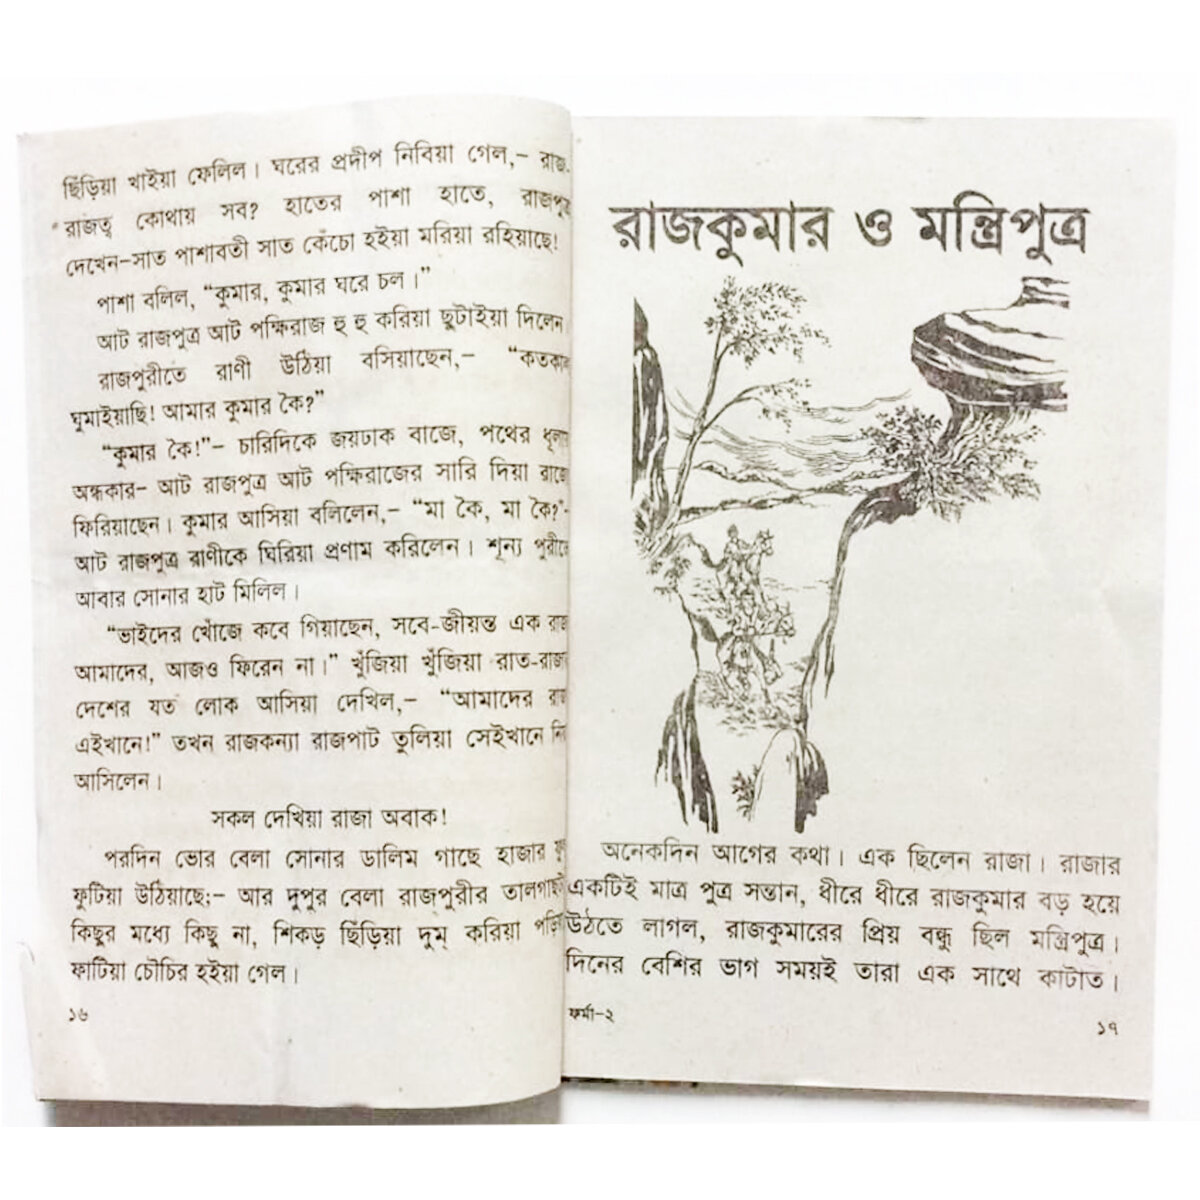 ছিঁড়িয়া খাইয়া ফেলিল। ঘরের প্রদীপ নিবিয়া গেল,– রাজ-
রাজত্ব কোথায় সব? হাতের পাশা হাতে, রাজপুত্র
দেখেন–সাত পাশাবতী সাত কেঁচো হইয়া মরিয়া রহিয়াছে!
পাশা বলিল, “কুমার, কুমার ঘরে চল।”
আট রাজপুত্র আট পক্ষিরাজ হু হু করিয়া ছুটাইয়া দিলেন
রাজপুরীতে রাণী উঠিয়া বসিয়াছেন,– “কতকাল
ঘুমাইয়াছি! আমার কুমার কৈ?”
“কুমার কৈ!”– চারিদিকে জয়ঢাক বাজে, পথের ধূলায়
অন্ধকার– আট রাজপুত্র আট পক্ষিরাজের সারি দিয়া রাজ্যে
ফিরিয়াছেন। কুমার আসিয়া বলিলেন,– “মা কৈ, মা কৈ?”-
আট রাজপুত্র রাণীকে ঘিরিয়া প্রণাম করিলেন। শূন্য পুরীতে
আবার সোনার হাট মিলিল।
“ভাইদের খোঁজে কবে গিয়াছেন, সবে-জীয়ন্ত এক রাজা
আমাদের, আজও ফিরেন না।” খুঁজিয়া খুঁজিয়া রাত-রাজার
দেশের যত লোক আসিয়া দেখিল,– “আমাদের রাজা
এইখানে!” তখন রাজকন্যা রাজপাট তুলিয়া সেইখানে নিয়া
আসিলেন।
সকল দেখিয়া রাজা অবাক!
পরদিন ভোর বেলা সোনার ডালিম গাছে হাজার ফুল
ফুটিয়া উঠিয়াছে;– আর দুপুর বেলা রাজপুরীর তালগাছটা
কিছুর মধ্যে কিছু না, শিকড় ছিঁড়িয়া দুম্ করিয়া পড়িয়া
ফাটিয়া চৌচির হইয়া গেল।
১৬
রাজকুমার ও মন্ত্রিপুত্র
অনেকদিন আগের কথা। এক ছিলেন রাজা। রাজার
একটিই মাত্র পুত্র সন্তান, ধীরে ধীরে রাজকুমার বড় হয়ে
উঠতে লাগল, রাজকুমারের প্রিয় বন্ধু ছিল মন্ত্রিপুত্র।
দিনের বেশির ভাগ সময়ই তারা এক সাথে কাটাত।
ফর্মা–২
১৭